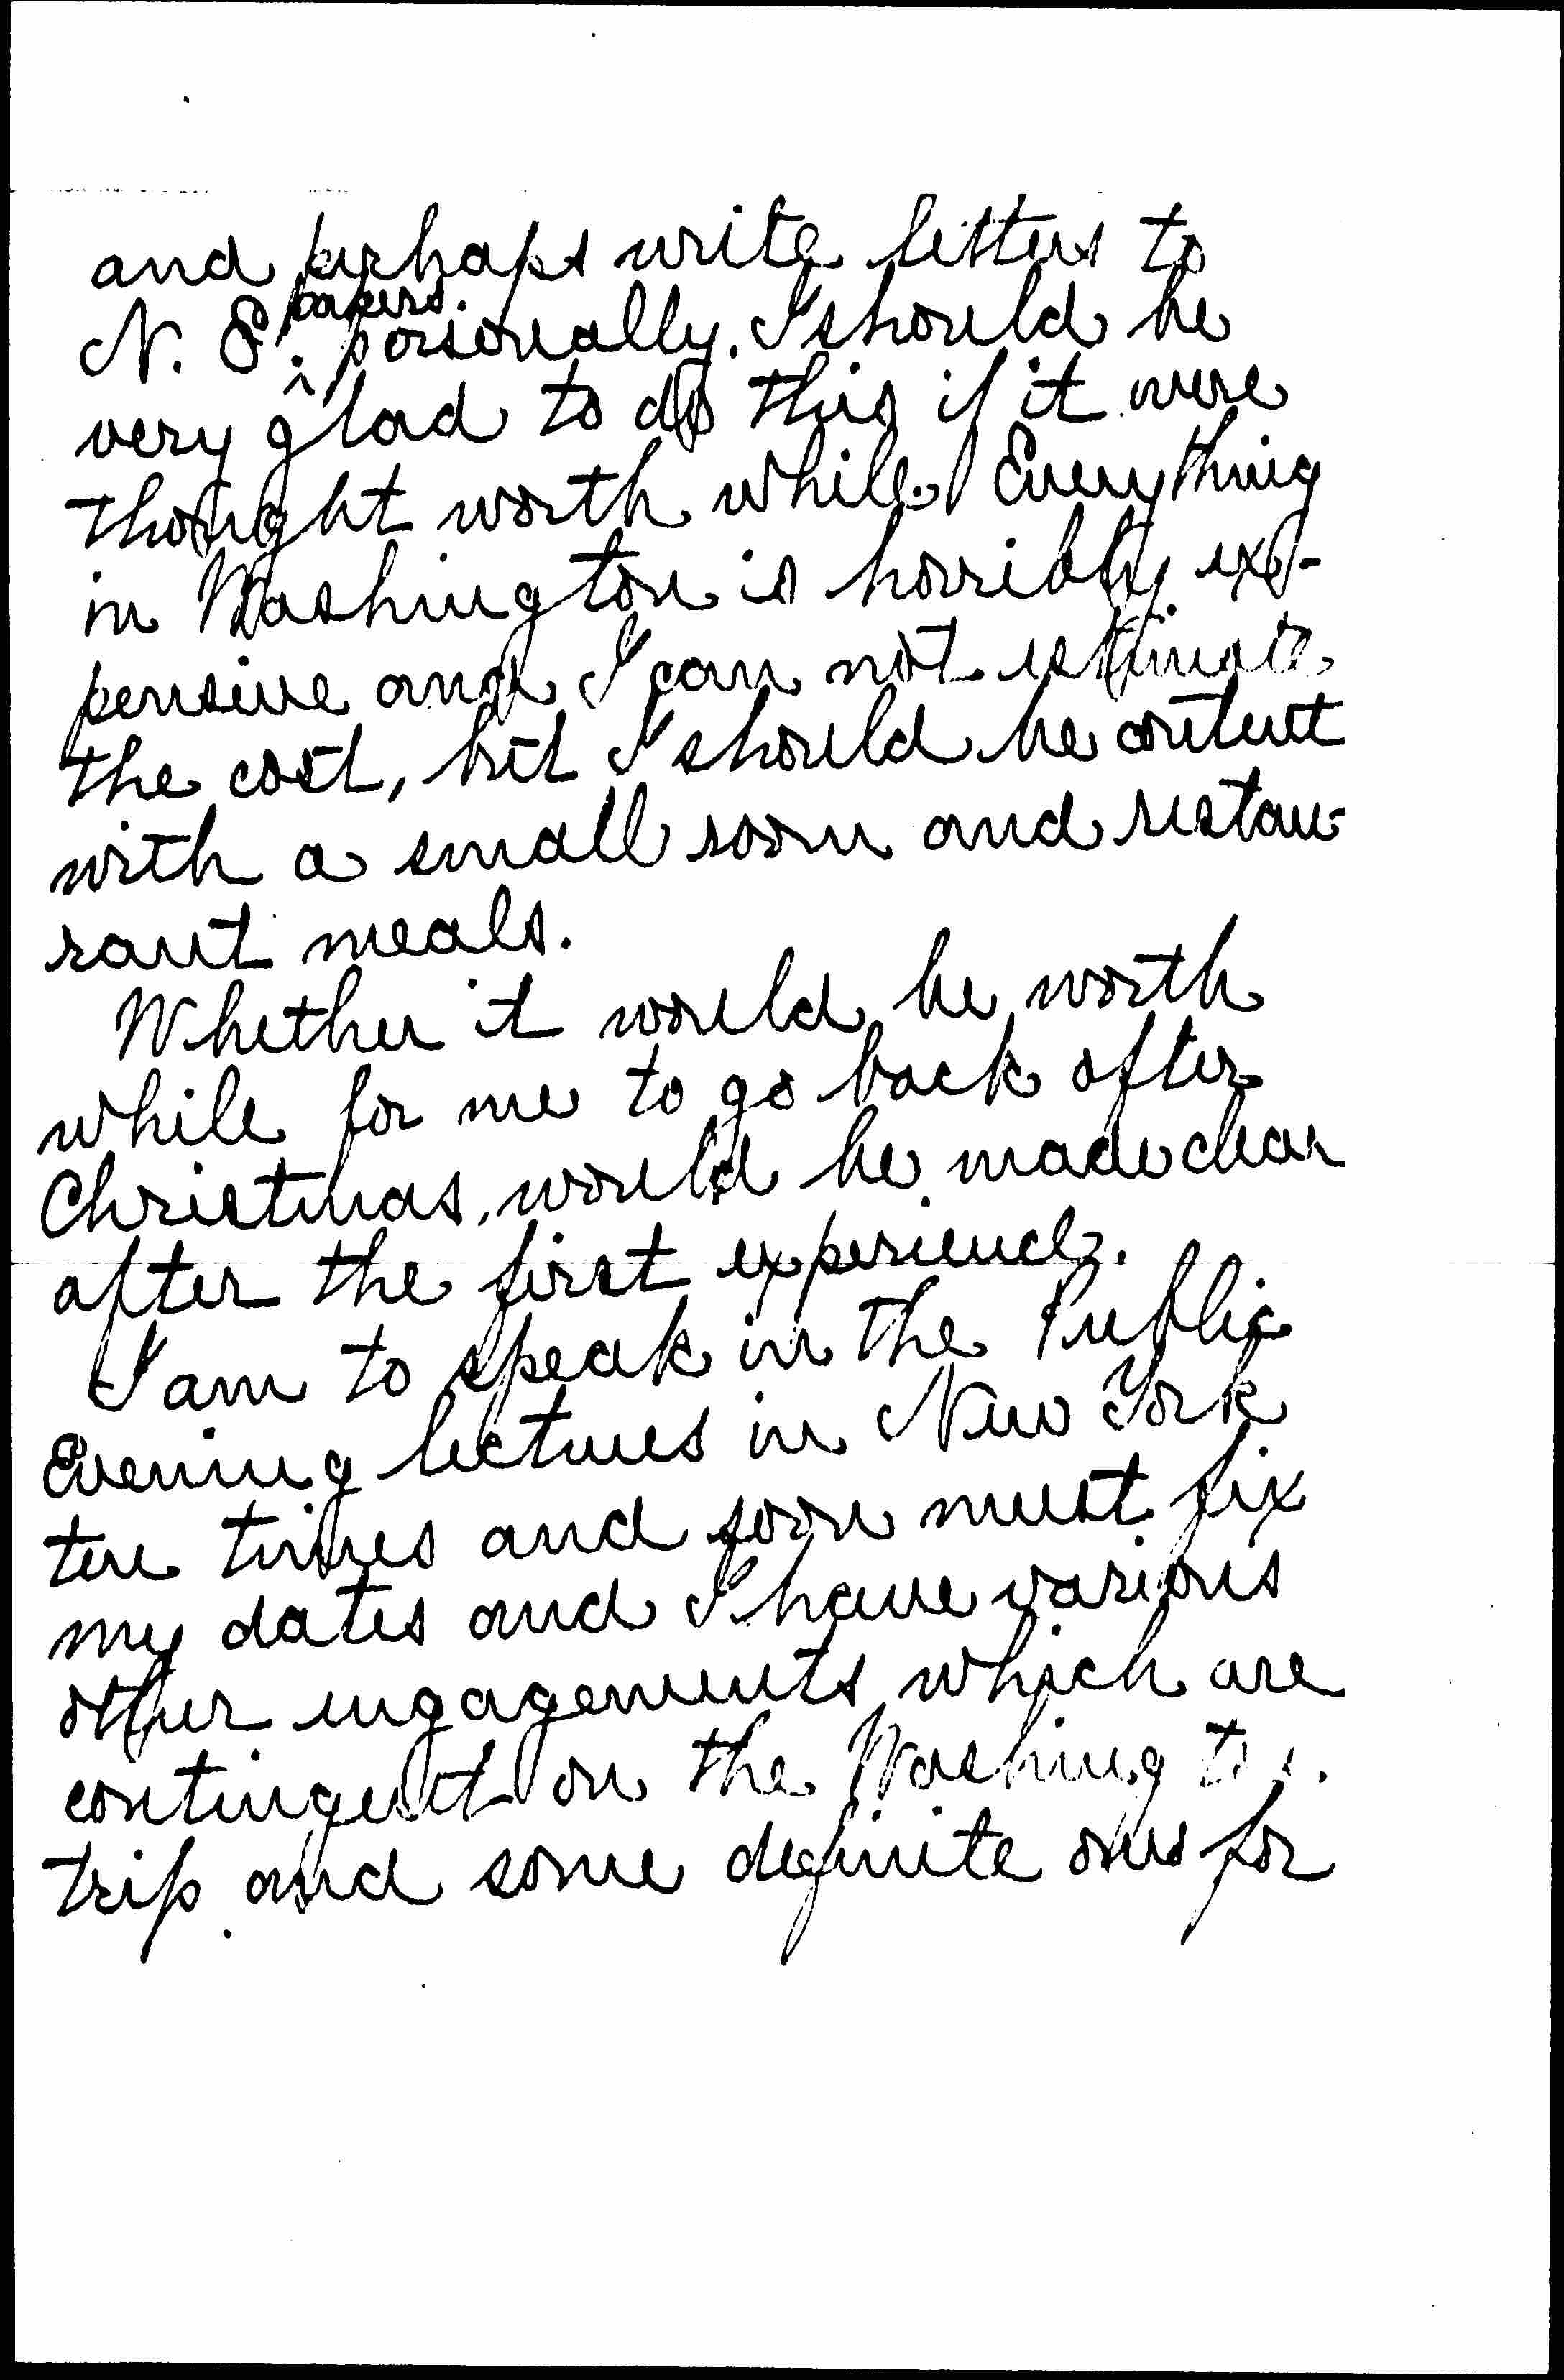 and perhaps write letters to
papers
N. E. personally. I should be
very glad to do this if it were
thought worth while. Everything
in Washington is horribly ex-
pensive and I can not estimate
the cost, but I should be content
with a small room and restau-
rant meals.
Whether it would be worth
while for me to go back after
Christmas, would be made clear
after the first experience.
I am to speak in the Public
Evening lectures in New York
ten times and soon must fix
my dates and I have various
other engagements which are
contingent on the Washington
trip and some definite ones for